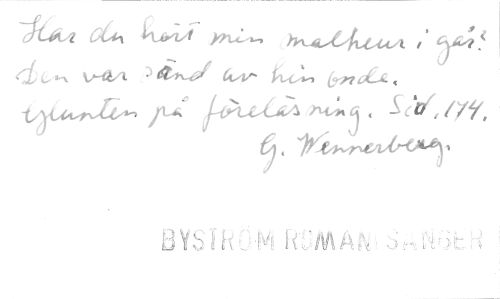 Har du hört min malheur i går?
Den var sänd av hin onde.
Glunten på föreläsning. Sid. 174.
G. Wennerberg.
BYSTRÖM ROMAN SÅNGER